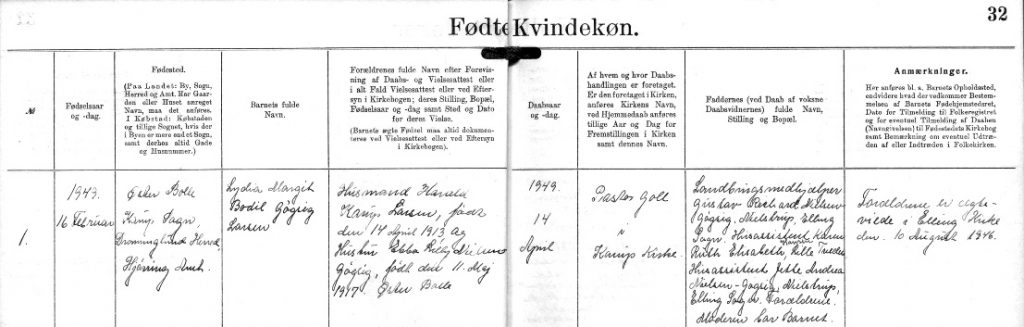 32
Fødte Kvindekøn.
№
Fødselsaar
og -dag.
Fødested.
(Paa Landet: By, Sogn,
Herred og Amt. Har Gaar-
den eller Huset særeget
Navn, maa det anføres.
I Købstad: Købstaden
og tillige Sognet, hvis der
i Byen er mere end et Sogn,
samt derhos altid Gade
og Husnummer.)
Barnets fulde
Navn.
Forældrenes fulde Navn efter Forevis-
ning af Daabs- og Vielsesattest eller
i alt Fald Vielsesattest eller ved Efter-
syn i Kirkebogen; deres Stilling, Bopæl,
Fødselsaar og -dag samt Sted og Dato
for deres Vielse.
(Barnets ægte Fødsel maa altid dokumente-
res ved Vielsesattest eller ved Eftersyn
i Kirkebogen.)
Daabsaar
og -dag.
Af hvem og hvor Daabs-
handlingen er foretaget.
Er den foretaget i Kirken,
anføres Kirkens Navn,
ved Hjemmedaab anføres
tillige Aar og Dag for
Fremstillingen i Kirken
samt dennes Navn.
Faddernes (ved Daab af voksne
Daabsvidnernes) fulde Navn,
Stilling og Bopæl.
Anmærkninger.
Her anføres bl. a. Barnets Opholdssted,
endvidere hvad der vedkommer Bestem-
melsen af Barnets Fødehjemstedsret,
Dato for Tilmelding til Folkeregistret
og for eventuel Tilmelding af Daaben
(Navngivelsen) til Fødestedets Kirkebog
samt Bemærkning om eventuel Udtræ-
den af eller Indtræden i Folkekirken.
1.
1943.
16 Februar
Øster Bolle
Karup Sogn,
Dronninglund Herred
Hjørring Amt.
Lydia Margit
Bodil Gøgsig
Larsen
Husmand
Karup Larsen, født
den 14 April 1913 og
Hustru Ebba Nielsen
Gøgsig, født den 11. Maj
1917. Øster Bolle
1949.
14
April
Pastor Goll
"
Karup Kirke.
Landbrugsmedhjælper
Gustav Nielsen
Gøgsig, Elling
Sogn. Husassistent Karen
Ruth Elisabeth
Husassistent Andrea
Nielsen-Gøgsig,
Elling Sogn. Forældrene.
Moderen bar Barnet.
Forældrene er ægte-
viede i Elling Kirke
den 10 August 1946.